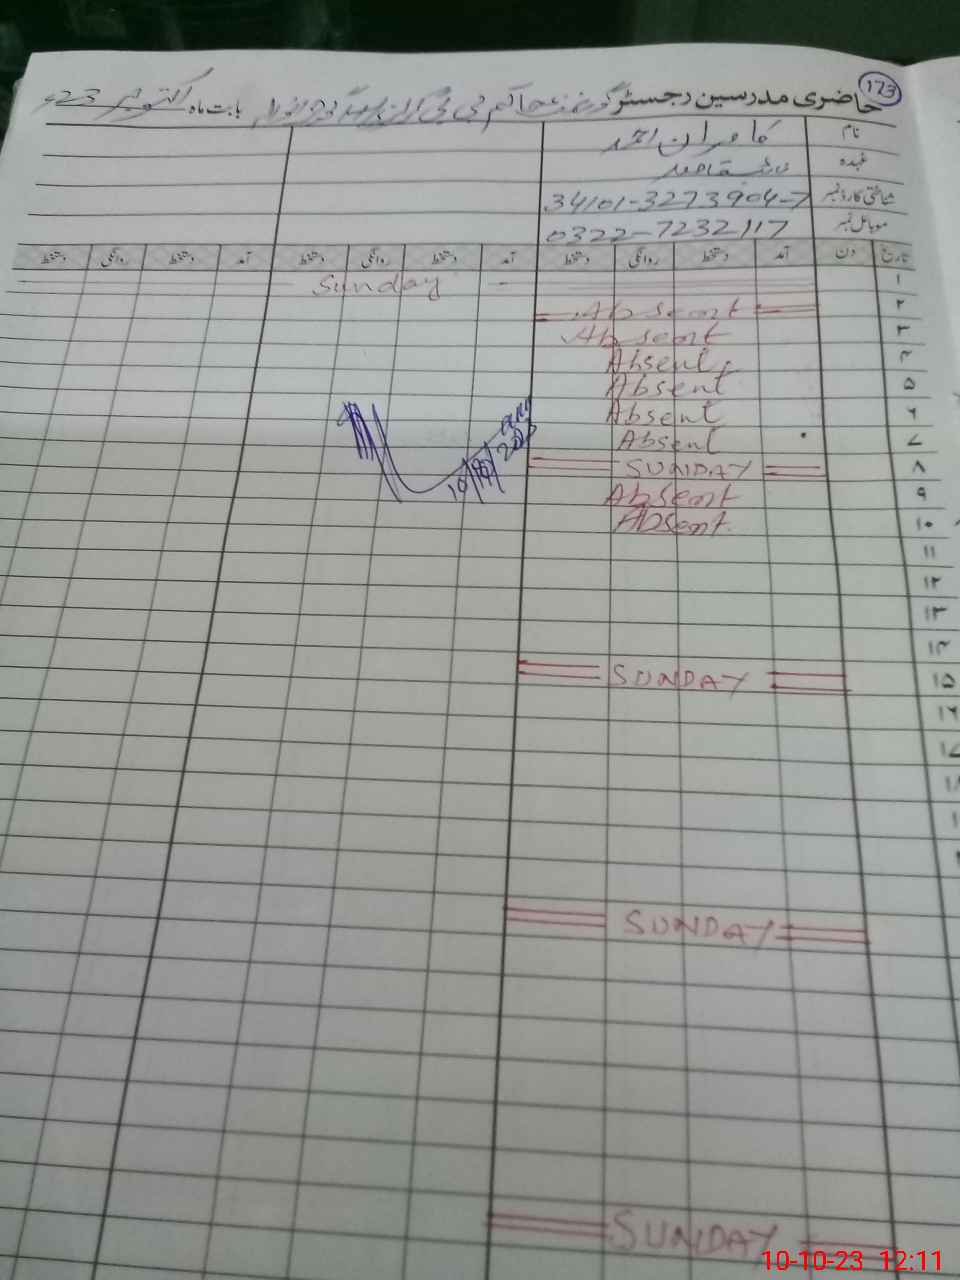 173
حاضری مدرسین رجسٹر گورنمنٹ حاکم بی بی بابت ماہ اکتوبر 23ء
نام کامران احمد
عہدہ
شناختی کارڈ نمبر 34101-3273904-7
موبائل نمبر 0322-7232117
تاریخ دن آمد دستخط روانگی دستخط آمد دستخط روانگی دستخط آمد دستخط روانگی دستخط
۱ Sunday
۲ Absent
۳ Absent
۴ Absent
۵ Absent
۶ Absent
۷ Absent
۸ SUNDAY
۹ Absent
۱۰ Absent
۱۱
۱۲
۱۳
۱۴
۱۵ SUNDAY
۱۶
۱۷
۱۸
SUNDAY
SUNDAY
10-10-23 12:11